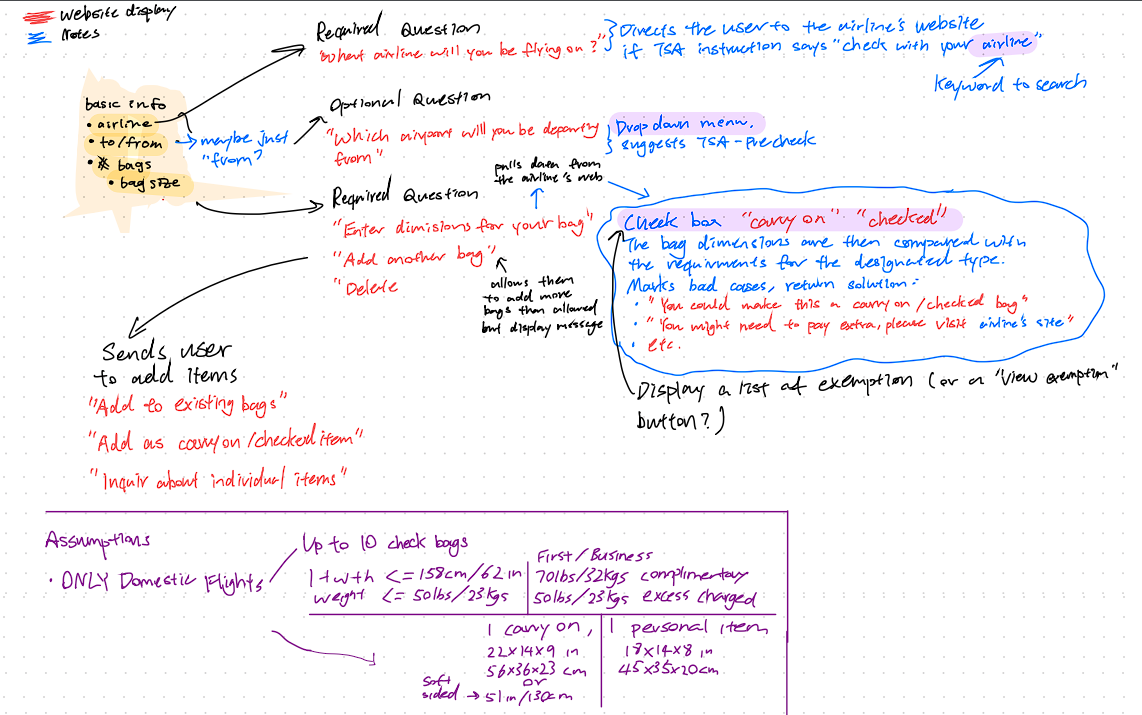 website display
Notes
Required Question
"What airline will you be flying on?"
Directs the user to the airline's website
if TSA instruction says "check with your airline"
Keyword to search
basic info
• airline
• to/from
• bags
• bag size
maybe just
"from"?
Optional Question
"Which airport will you be departing
from"
Drop down menu.
suggests TSA-precheck
pulls down from
the airline's web
Required Question
"Enter dimisions for your bag"
"Add another bag"
"Delete
allows them
to add more
bags than allowed
but display message
Check box "carry on" "checked"
The bag dimensions are then compared with
the requirments for the designated type.
Marks bad cases, return solution:
• "You could make this a carry on/checked bag"
• "You might need to pay extra, please visit airline's site"
• etc.
Display a list of exemption (or a "view exemption"
button?)
Sends user
to add items
"Add to existing bags"
"Add as carry on/checked item"
"Inquir about individual items"
Assumptions
• ONLY Domestic Flights
Up to 10 check bags
l+w+h <= 158cm/62 in
weight <= 50lbs/23kgs
First/Business
70lbs/32kgs complimentary
50lbs/23kgs excess charged
1 carry on,
22x14x9 in
56x36x23 cm
or
soft
sided → 51in/130cm
1 personal item
18x14x8 in
45x35x20cm